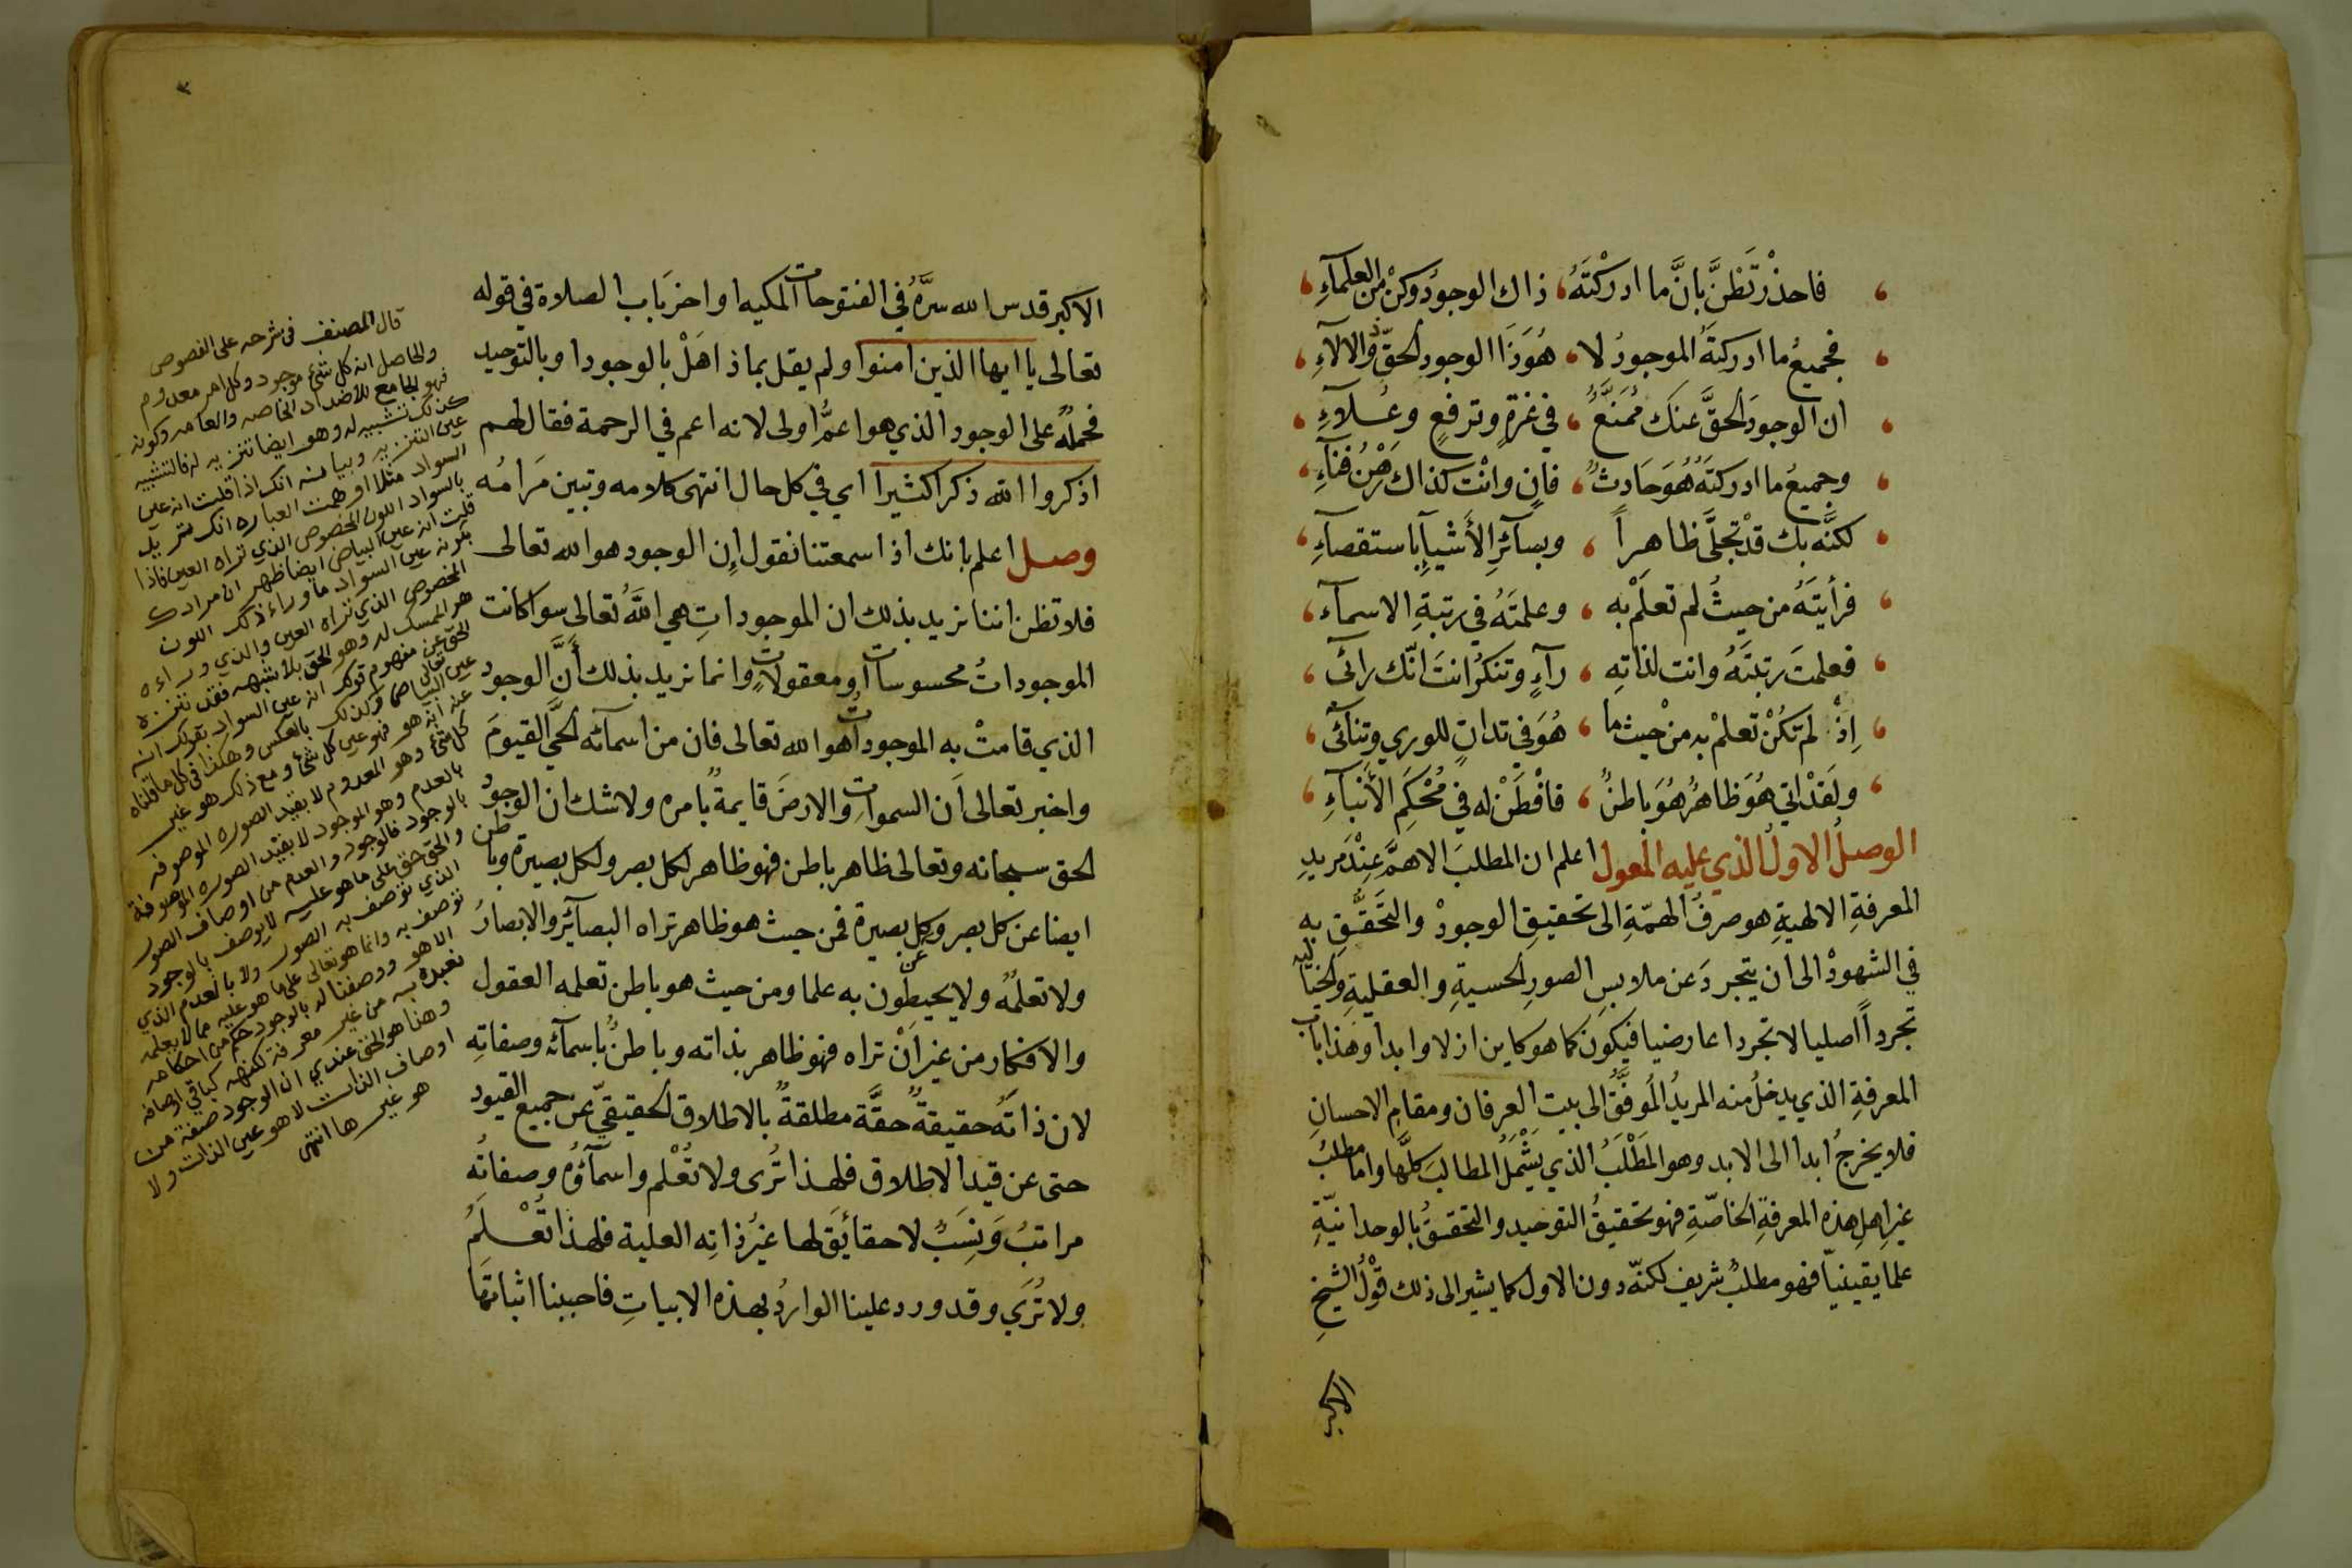 فاحذرْ تَظنَّ بانَّ ما ادركْتَهُ، ذاك الوجودُ وكنْ من العلمآءِ
فجميعُ ما ادركتَهُ الموجودُ لا، هُوَ ذَا الوجودِ الحقّ ذو الالآءِ
ان الوجودَ الحقَّ عنك مُمَنَّعٌ، في عزةٍ وترفعٍ وعُلآءِ
وجميعُ ما ادركتَهُ هُوَ حَادثٌ، فانٍ وانْت كذاك رَهْنُ فنآءِ
لكنَّه بك قدْ تجلَّى ظاهِراً، وبسآئرِ الأَشْيآءِ باستقصآءِ
فرأيتَهُ من حيثُ لم تعلَمْ به، وعلمتَهُ في رتبةِ الاسمآء
فعلمتَ رتبتَهُ وانت لذاتِه، رآءٍ وتنكرُ انتَ انّك رائى
اِذْ لم تكُنْ تعلمْ به منْ حيث ما، هُوَ في تدانٍ للوري وتنآئى
ولَقدْ اتى هُوَ ظاهرٌ هُوَ باطنٌ، فافْطَنْ له في مُحْكَمِ الأَنْبآءِ
الوصلُ الاولُ الذي عليه المعول اعلم ان المطلبَ الاهمَّ عِنْدَ مريدِ
المعرفةِ الالهيةِ هو صرفُ الهمّةِ الى تحقيقِ الوجودْ والتَّحَقُّقِ به
في الشهودْ الى ان يتجردَ عن ملابسِ الصورِ الحسيةِ والعقليةِ والخياليه
تجرداً اصليا لا تجردا عارضيا فيكون كما هو كاين ازلا وابدا وهذا باب
المعرفةِ الذي يدخلُ منه المريدُ المُوفَّقُ الى بيت العرفان ومقامِ الاحسانِ
فلا يخرجُ ابدا الى الابد وهو المَطْلَبُ الذي يَشْمَلُ المطالبَ كلَّها واما مطلبُ
غيرِ اهلِ هذه المعرفةِ الخاصّةِ فهو تحقيقُ التوحيد والتحققُ بالوحدانيّةِ
علما يقينيّا فهو مطلبٌ شريف لكنّه دون الاول كما يشير الى ذلك قوْلُ الشيخِ
الاكبر
٣
الاكبر قدس الله سرَّهُ في الفتوحات المكيه اواخرَ باب الصلاة في قوله
تعالى يا ايها الذين امنوا ولم يقل بماذا هَلْ بالوجود او بالتوحيد
فحملُهُ على الوجود الذي هو اعمُّ اولى لانه اعم في الرحمة فقال لهم
اذكروا الله ذكرا كثيرا اي في كل حال انتهى كلامه وتبين مَرامُه
وصل اعلم بانك اذا سمعتنا نقول إن الوجود هو الله تعالى
فلا تظن اننا نريد بذلك ان الموجوداتِ هي اللهُ تعالى سوا كانت
الموجوداتُ محسوسات او معقولاتٍ وانما نريد بذلك أَنَّ الوجود
الذي قامتْ به الموجوداتُ هو الله تعالى فان من اسمآئه الحَّي القيومَ
واخبر تعالى أَن السمواتِ والارضَ قايمةٌ بامره ولا شك ان الوجودُ
الحق سبحانه وتعالى ظاهر باطن فهو ظاهر لكل بصر ولكل بصيرة وباطن
ايضا عن كل بصر وعن كل بصيرة فمن حيث هو ظاهر تراه البصآئر والابصارُ
ولا تعلمُه ولا يحيطون به علما ومن حيث هو باطن تعلمه العقول
والافكار من غير اَنْ تراه فهو ظاهر بذاته وباطنٌ باسمآئه وصفاتِهِ
لان ذاتَهُ حقيقةٌ حقَّة مطلقةٌ بالاطلاق الحقيقيّ عن جميع القيود
حتى عن قيد الاطلاق فلهذا تُرى ولا تُعْلم واسمآؤُه وصفاتُه
مراتبُ وَنِسَبٌ لا حقائِقَ لها غيرُ ذاتِه العلية فلهذا تُعْلَمُ
ولا تُرَى وقد ورد علينا الواردُ بهذه الابياتِ فاحببنا اثباتَها
قال المصنف فى شرحه على الفصوص
والحاصل انه كل شئ موجود وكل امر معدوم
فهو الجامع للأضداد الخاصه والعامه وكونه
كذلك تشبيه له وهو ايضا تنزيه له فالتشبيه
عين التنزيه وبيانه انك اذا قلت انه عين
السواد مثلا اوهمت العباره انك تريد
بالسواد اللون المخصوص الذي تراه العين فاذا
قلت انه عين البياض ايضا ظهر ان مرادك
بكونه عين السواد ما وراء ذلك اللون
المخصوص الذي تراه العين والذي وراءه
هو الممسك له وهو الحق بلا شبهه فقد تنزه
الحق عن مفهوم قولك انه عين السواد بقولك انه
عين البياض وكذلك بالعكس وهكذا في كل ما قلناه
عنه انه هو فهو عين كل شئ ومع ذلك هو غير
كل شئ وهو المعدوم لا بقيد الصوره الموصوفه
بالعدم وهو الموجود لا بقيد الصوره الموصوفة
بالوجود فالوجود والعدم من اوصاف الصور
والحق حق على ما هو عليه لا يوصف بالوجود
الذي توصف به الصور ولا بالعدم الذي
توصف به وانما هو تعالى على ما هو عليه مما لا يعلمه
الا هو ووصفنا له بالوجود حكم من احكامه
نعبده به من غير معرفة لكنهه كباقي اوصافه
وهذا هو الحق عندي ان الوجود صفة من
اوصاف الذات لا هو عين الذات ولا
هو غيرها انتهى